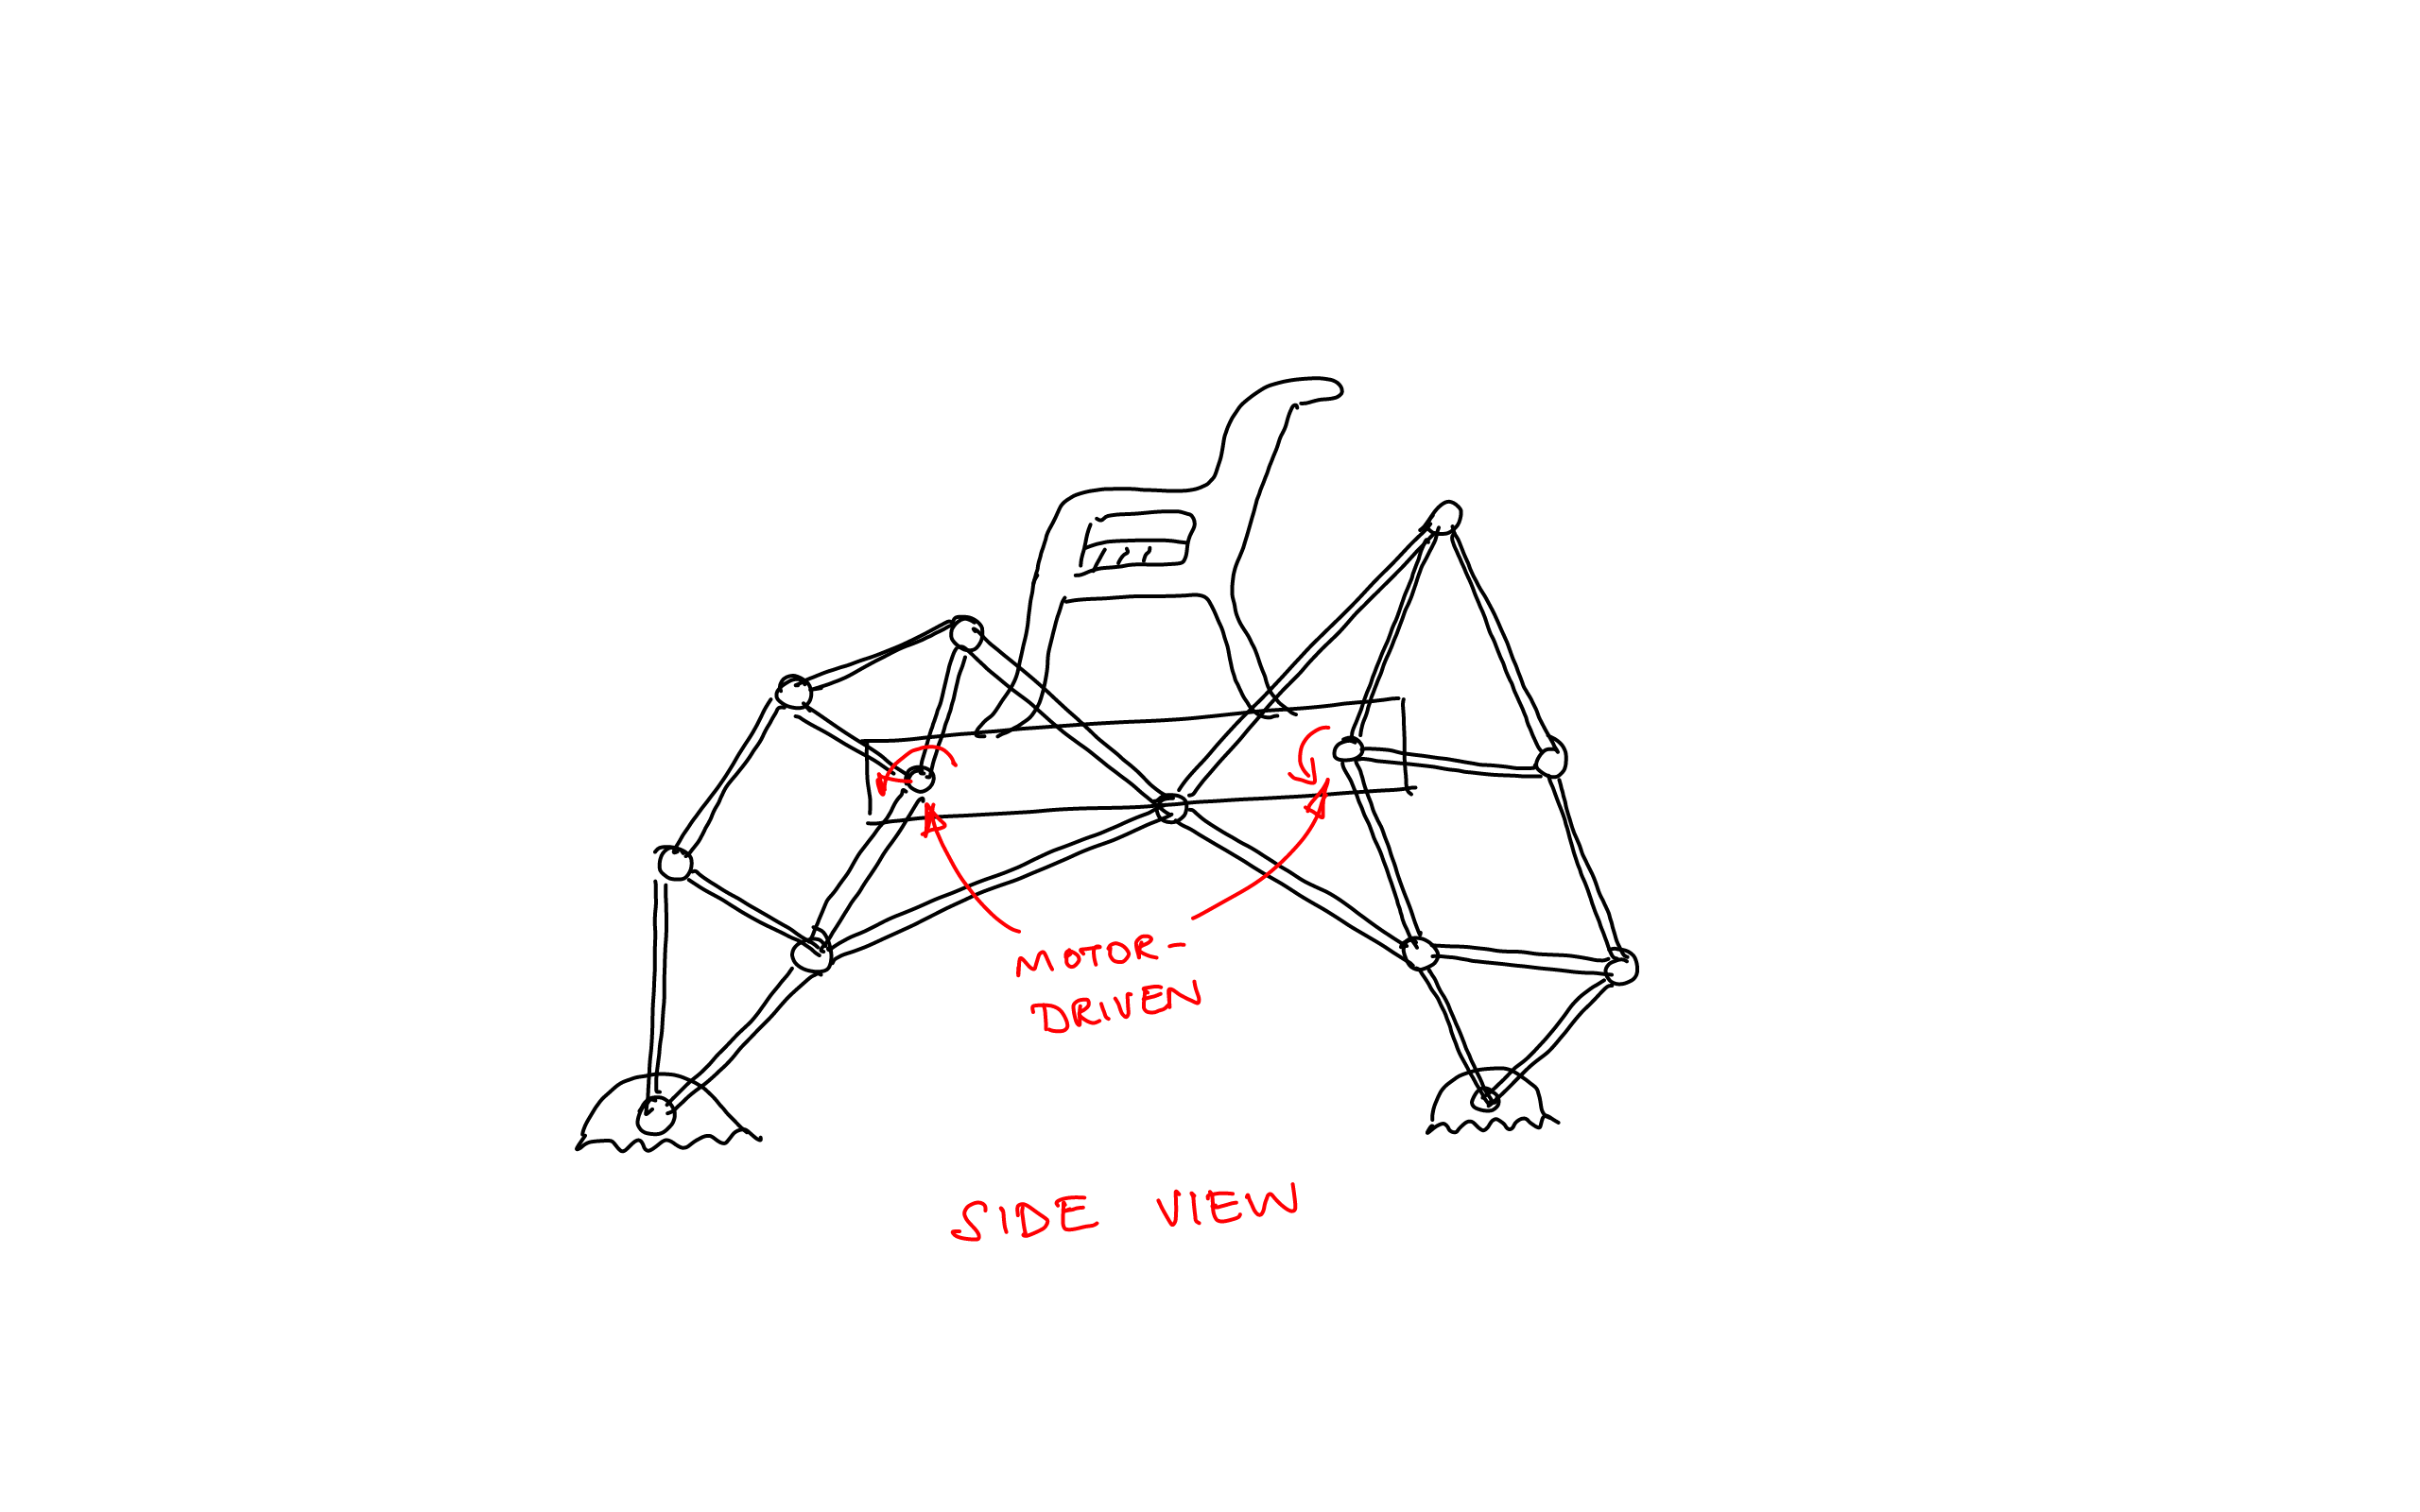 MOTOR-
DRIVEN
SIDE VIEW